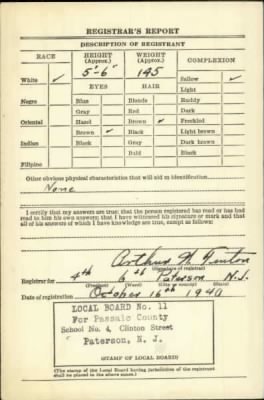 REGISTRAR'S REPORT
DESCRIPTION OF REGISTRANT
RACE HEIGHT (Approx.) WEIGHT (Approx.) COMPLEXION
White ✓ 5'-6" 145 Sallow ✓
EYES HAIR Light
Negro Blue Blonde Ruddy
Gray Red Dark
Oriental Hazel Brown ✓ Freckled
Brown ✓ Black Light brown
Indian Black Gray Dark brown
Bald Black
Filipino
Other obvious physical characteristics that will aid in identification
None
I certify that my answers are true; that the person registered has read or has had
read to him his own answers; that I have witnessed his signature or mark and that
all of his answers of which I have knowledge are true, except as follows:
Arthur Fenton
(Signature of registrar)
Registrar for 4th 6th Paterson N.J.
(Precinct) (Ward) (City or county) (State)
Date of registration October 16th 1940
LOCAL BOARD No. 11
For Passaic County
School No. 4, Clinton Street
Paterson, N. J.
(STAMP OF LOCAL BOARD)
(The stamp of the Local Board having jurisdiction of the registrant
shall be placed in the above space.)